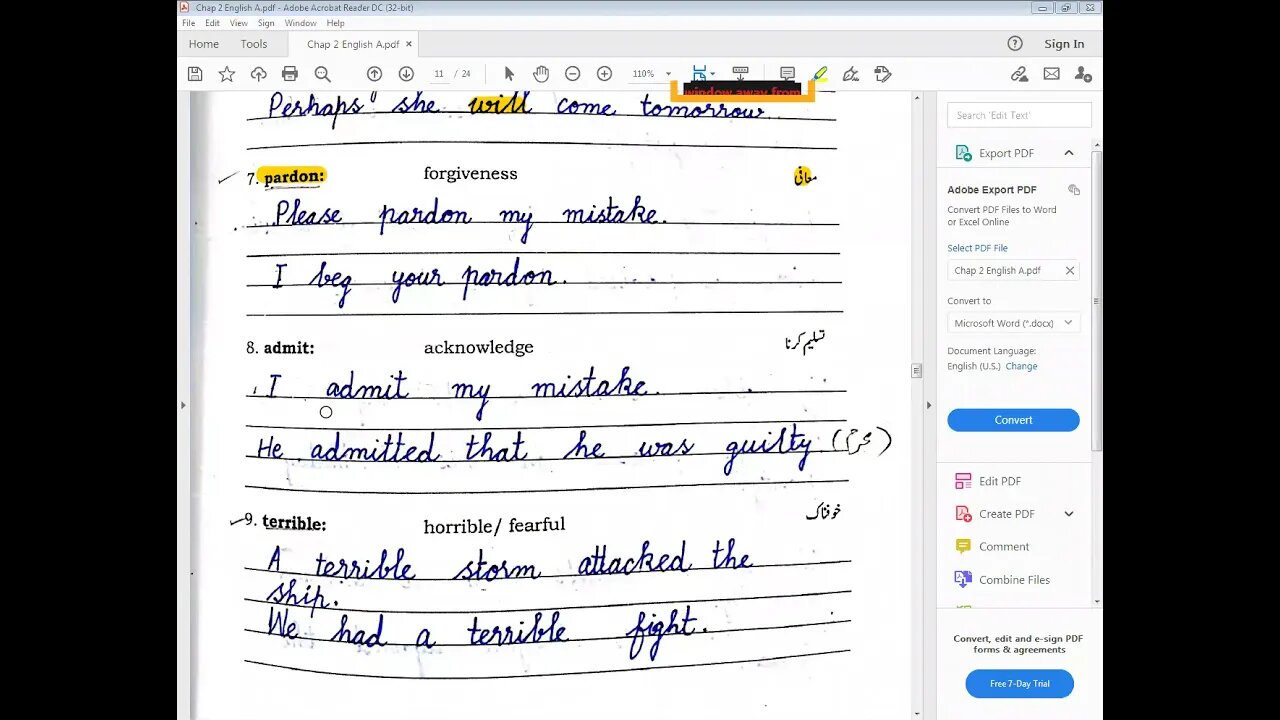 Chap 2 English A.pdf - Adobe Acrobat Reader DC (32-bit)
File Edit View Sign Window Help
Home Tools Chap 2 English A.pdf × ? Sign In
11 / 24 110%
window away from
Perhaps she will come tomorrow
7. pardon: forgiveness معافی
Please pardon my mistake.
I beg your pardon.
8. admit: acknowledge تسلیم کرنا
I admit my mistake.
He admitted that he was guilty (مجرم)
9. terrible: horrible/ fearful خوفناک
A terrible storm attacked the
ship.
We had a terrible fight.
Search 'Edit Text'
Export PDF
Adobe Export PDF
Convert PDF Files to Word
or Excel Online
Select PDF File
Chap 2 English A.pdf ×
Convert to
Microsoft Word (*.docx)
Document Language:
English (U.S.) Change
Convert
Edit PDF
Create PDF
Comment
Combine Files
Convert, edit and e-sign PDF
forms & agreements
Free 7-Day Trial